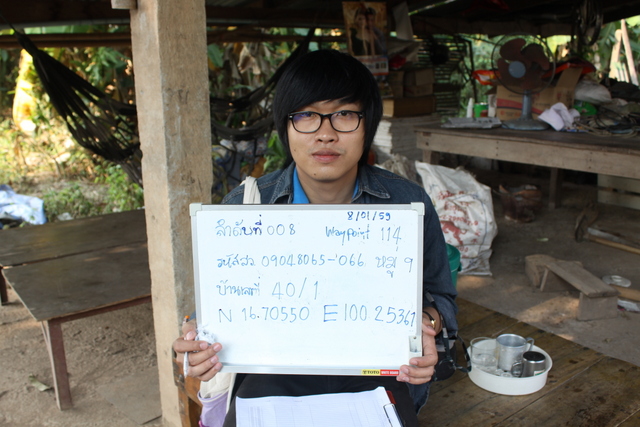 8/01/59
ลำดับที่ 008 Waypoint 114
รหัสสว 09048065-066 หมู่ 9
บ้านเลขที่ 40/1
N 16.70550 E 100.25367